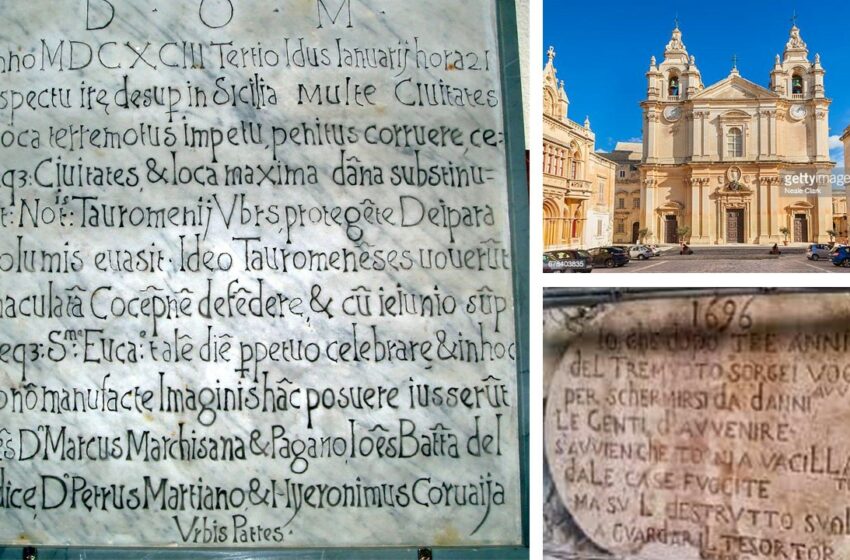 D O M
nno MDCXCIII Tertio Idus Ianuarij hora 21
spectu irę desup in Sicilia Multe Ciuitates
oca terremotus impetu, penitus corruere, cę=
qȝ: Ciuitates, & loca maxima dāna substinu=
t: Nosᵗ: Tauromenij Vbrs, protegēte Deipara
olumis euasit: Ideo Tauromenēses uouerūt
maculatā Cōcepnē defēdere, & cū ieiunio sup
eqȝ: Sᵐᵉ Eucaᵉ: talē diē ppetuo celebrarē & in hoc
nō manufacte Imaginis hāc posuere iusserūt
ēs Dʳ Marcus Marchisana & Pagano, Ioēs Batta del
dice, Dʳ Petrus Martiano, & Hyeronimus Coruaija
Vrbis Patres.
gettyimages
Neale Clark
678403835
1696
Io che dopo TRE ANNI
DEL TREMVOTO SORGEI
PER SCHERMIRSI DA DANNI
LE GENTI D'AVVENIRE
S'AVVIEN CHE TORNI A VACILLA
DALE CASE FUGGITE
MA SV L DESTRVTTO
A GVARDAR IL TESOR